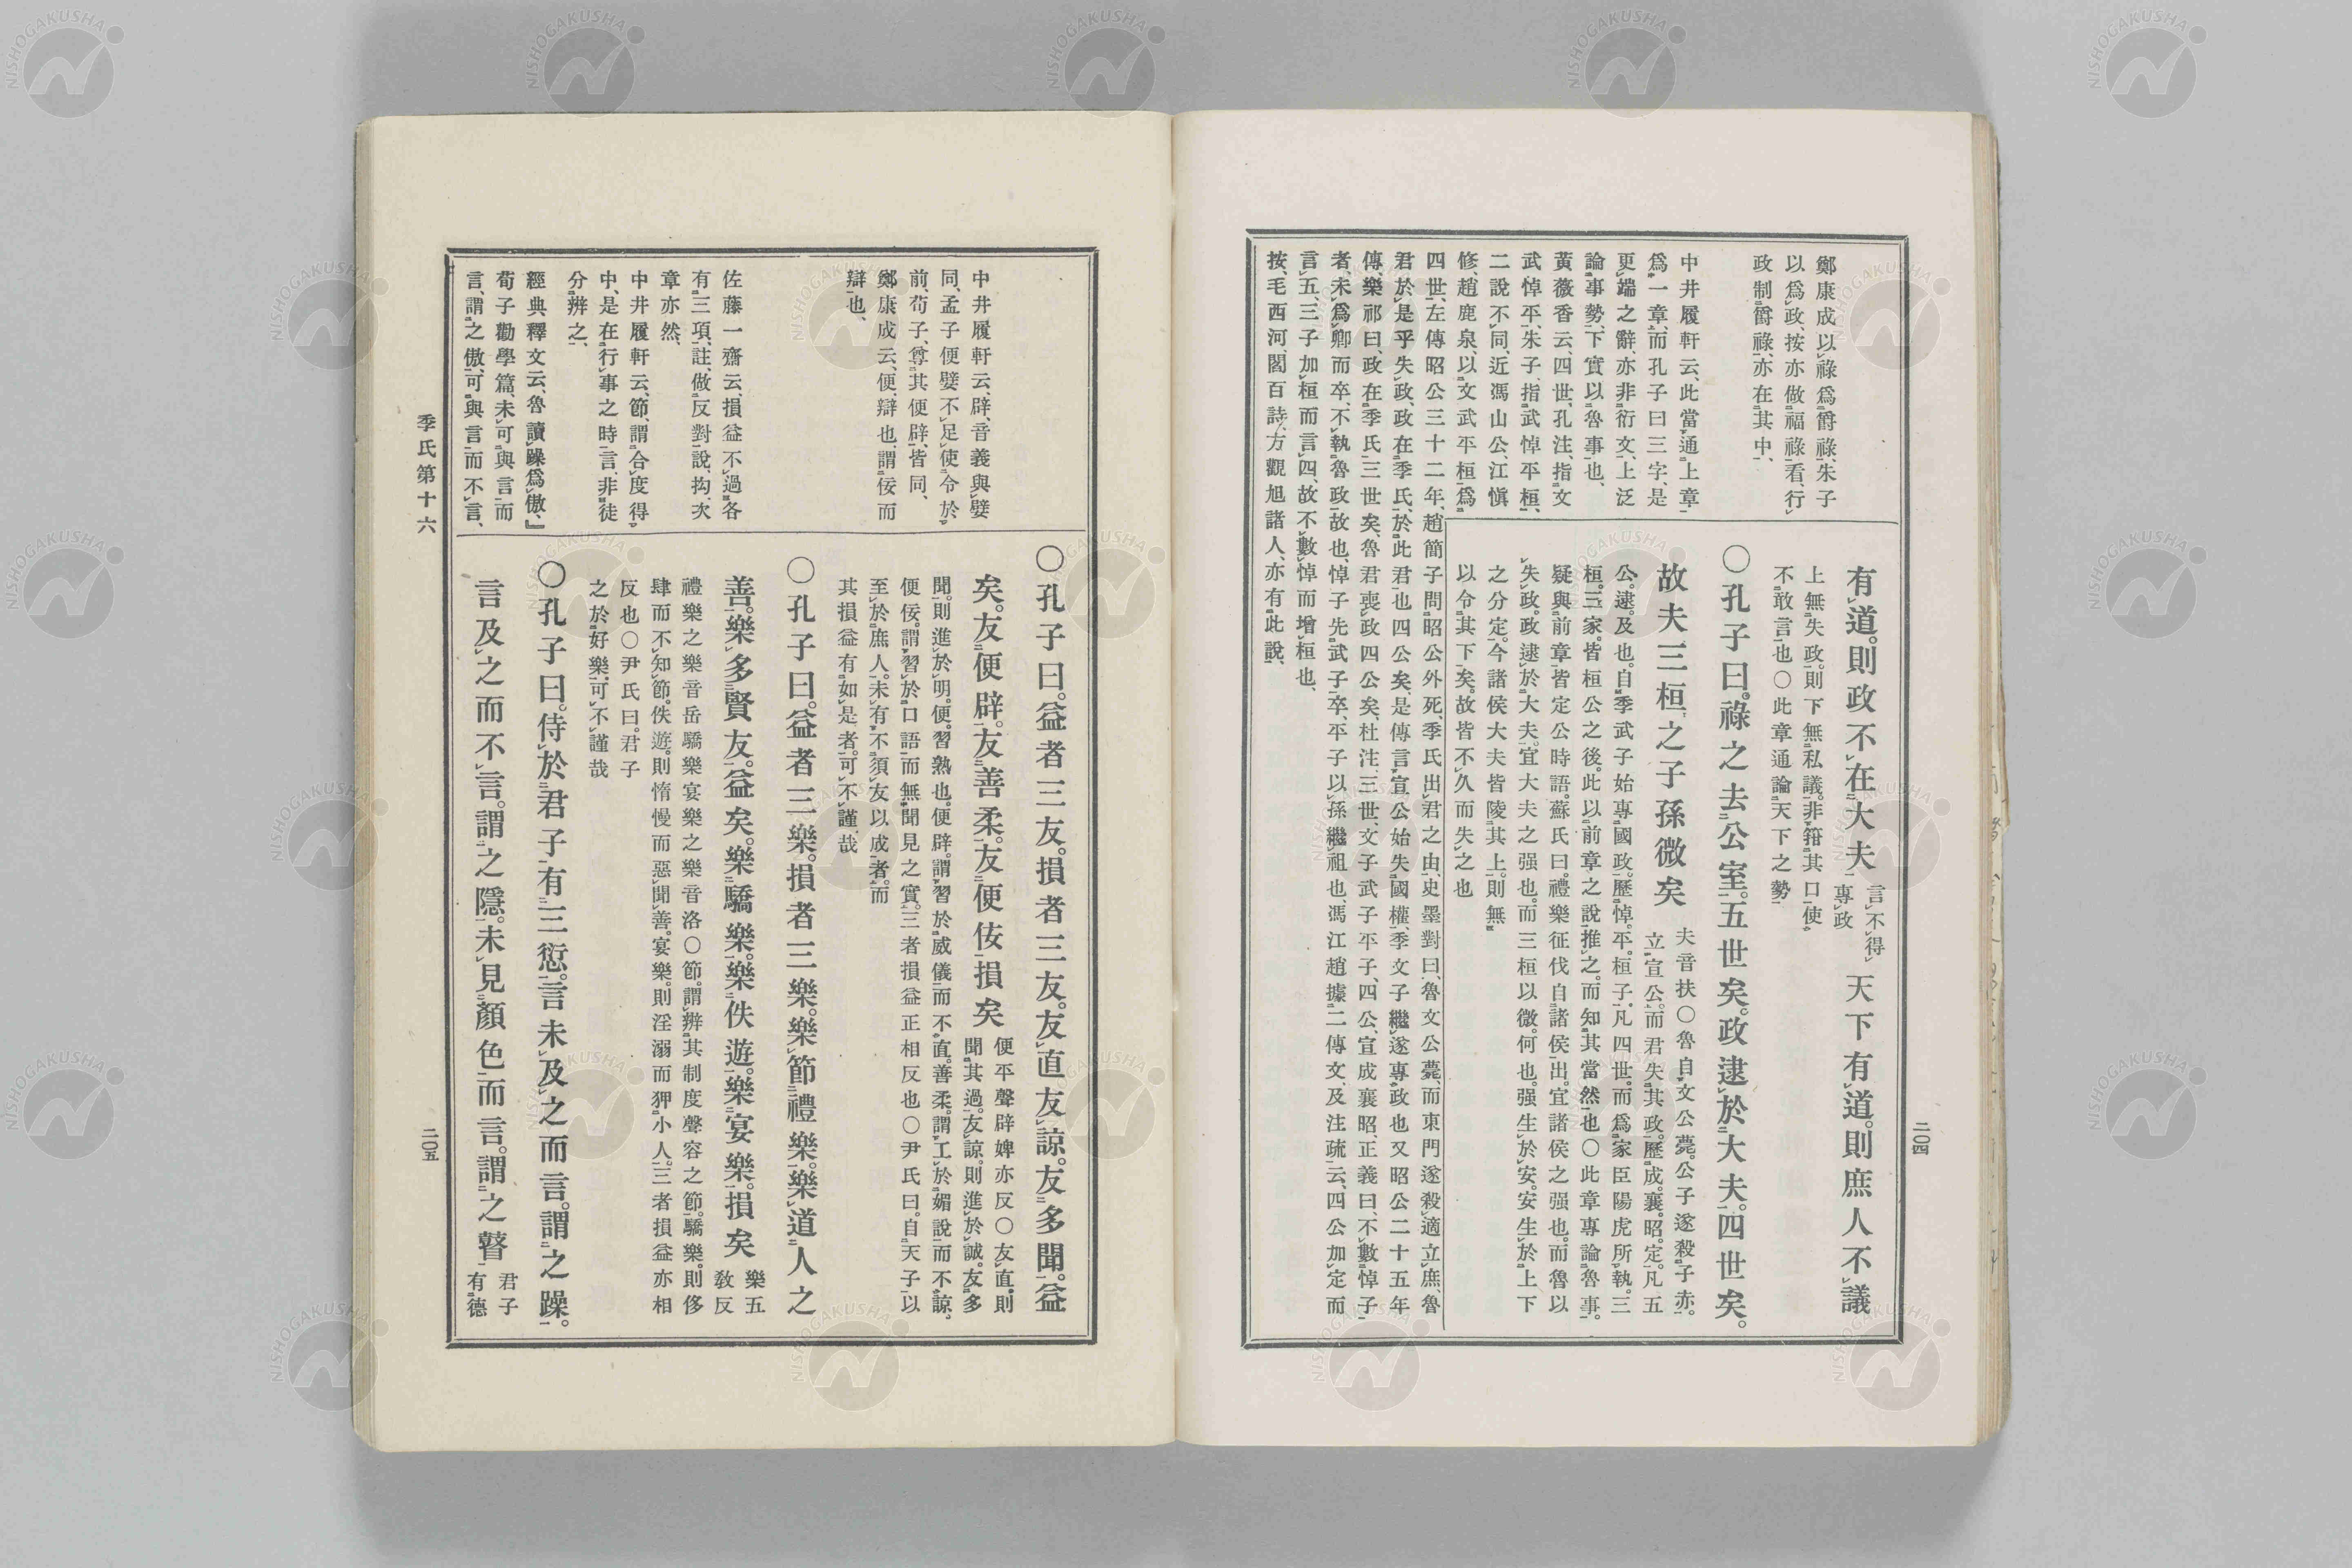 鄭康成以祿爲爵祿、朱子
以爲政、按亦做福祿看、行
政制爵祿、亦在其中、
中井履軒云、此當通上章
爲一章、而孔子曰三字、是
更端之辭、亦非衍文、上泛
論事勢、下實以魯事也、
黃薇香云、四世、孔注、指文
武悼平、朱子、指武悼平桓、
二說不同、近馮山公、江愼
修、趙鹿泉、以文武平桓、爲
四世、左傳昭公三十二年、趙簡子問、昭公外死、季氏出君之由、史墨對曰、魯文公薨、而東門遂殺適立庶、魯
君於是乎失政、政在季氏、於此君也四公矣、是傳言、宣公始失國權、季文子繼遂專政也又昭公二十五年
傳、樂祁曰、政在季氏、三世矣、魯君喪政四公矣、杜注、三世、文子武子平子、四公、宣成襄昭、正義曰、不數悼子
者、未爲卿而卒、不執魯政故也、悼子先武子卒、平子以孫繼祖也、馮江趙據二傳文、及注疏云、四公加定而
言五、三子加桓而言四、故不數悼而增桓也、
按、毛西河、閻百詩、方觀旭諸人、亦有此說、
有道。則政不在大夫 言不得專政 天下有道。則庶人不議
上無失政。則下無私議。非箝其口使
不敢言也〇此章通論天下之勢
〇孔子曰。祿之去公室。五世矣。政逮於大夫。四世矣。
故夫三桓之子孫微矣 夫音扶〇魯自文公薨。公子遂殺子赤。
立宣公。而君失其政。歷成。襄。昭。定。凡五
公。逮。及也。自季武子始專國政。歷悼。平。桓子。凡四世。而爲家臣陽虎所執。三
桓。三家。皆桓公之後。此以前章之說推之。而知其當然也〇此章專論魯事。
疑與前章皆定公時語。蘇氏曰。禮樂征伐自諸侯出。宜諸侯之强也。而魯以
失政。政逮於大夫。宜大夫之强也。而三桓以微。何也。强生於安。安生於上下
之分定。今諸侯大夫皆陵其上。則無
以令其下矣。故皆不久而失之也
二〇四
中井履軒云、辟、音義與嬖
同、孟子便嬖不足使令於
前、荀子、尊其便辟、皆同、
鄭康成云、便、辯也、謂佞而
辯也、
佐藤一齋云、損益不過各
有三項、註、做反對說、拘、次
章亦然、
中井履軒云、節、謂合度得
中、是在行事之時言、非徒
分辨之、
經典釋文云、魯讀躁爲傲、』
荀子勸學篇、未可與言而
言、謂之傲、可與言而不言、
〇孔子曰。益者三友。損者三友。友直友諒。友多聞。益
矣。友便辟。友善柔。友便佞損矣 便平聲辟婢亦反〇友直。則
聞其過。友諒。則進於誠。友多
聞。則進於明。便。習熟也。便辟。謂習於威儀而不直。善柔。謂工於媚說而不諒。
便佞。謂習於口語而無聞見之實。三者損益正相反也〇尹氏曰。自天子以
至於庶人。未有不須友以成者。而
其損益有如是者。可不謹哉
〇孔子曰。益者三樂。損者三樂。樂節禮樂。樂道人之
善。樂多賢友。益矣。樂驕樂。樂佚遊。樂宴樂。損矣 樂五
敎反
禮樂之樂音岳驕樂宴樂之樂音洛〇節。謂辨其制度聲容之節。驕樂。則侈
肆而不知節。佚遊。則惰慢而惡聞善。宴樂。則淫溺而狎小人。三者損益亦相
反也〇尹氏曰。君子
之於好樂。可不謹哉
〇孔子曰。侍於君子有三愆。言未及之而言。謂之躁。
言及之而不言。謂之隱。未見顏色而言。謂之瞽 君子
有德
季氏第十六
二〇五
NISHOGAKUSHA